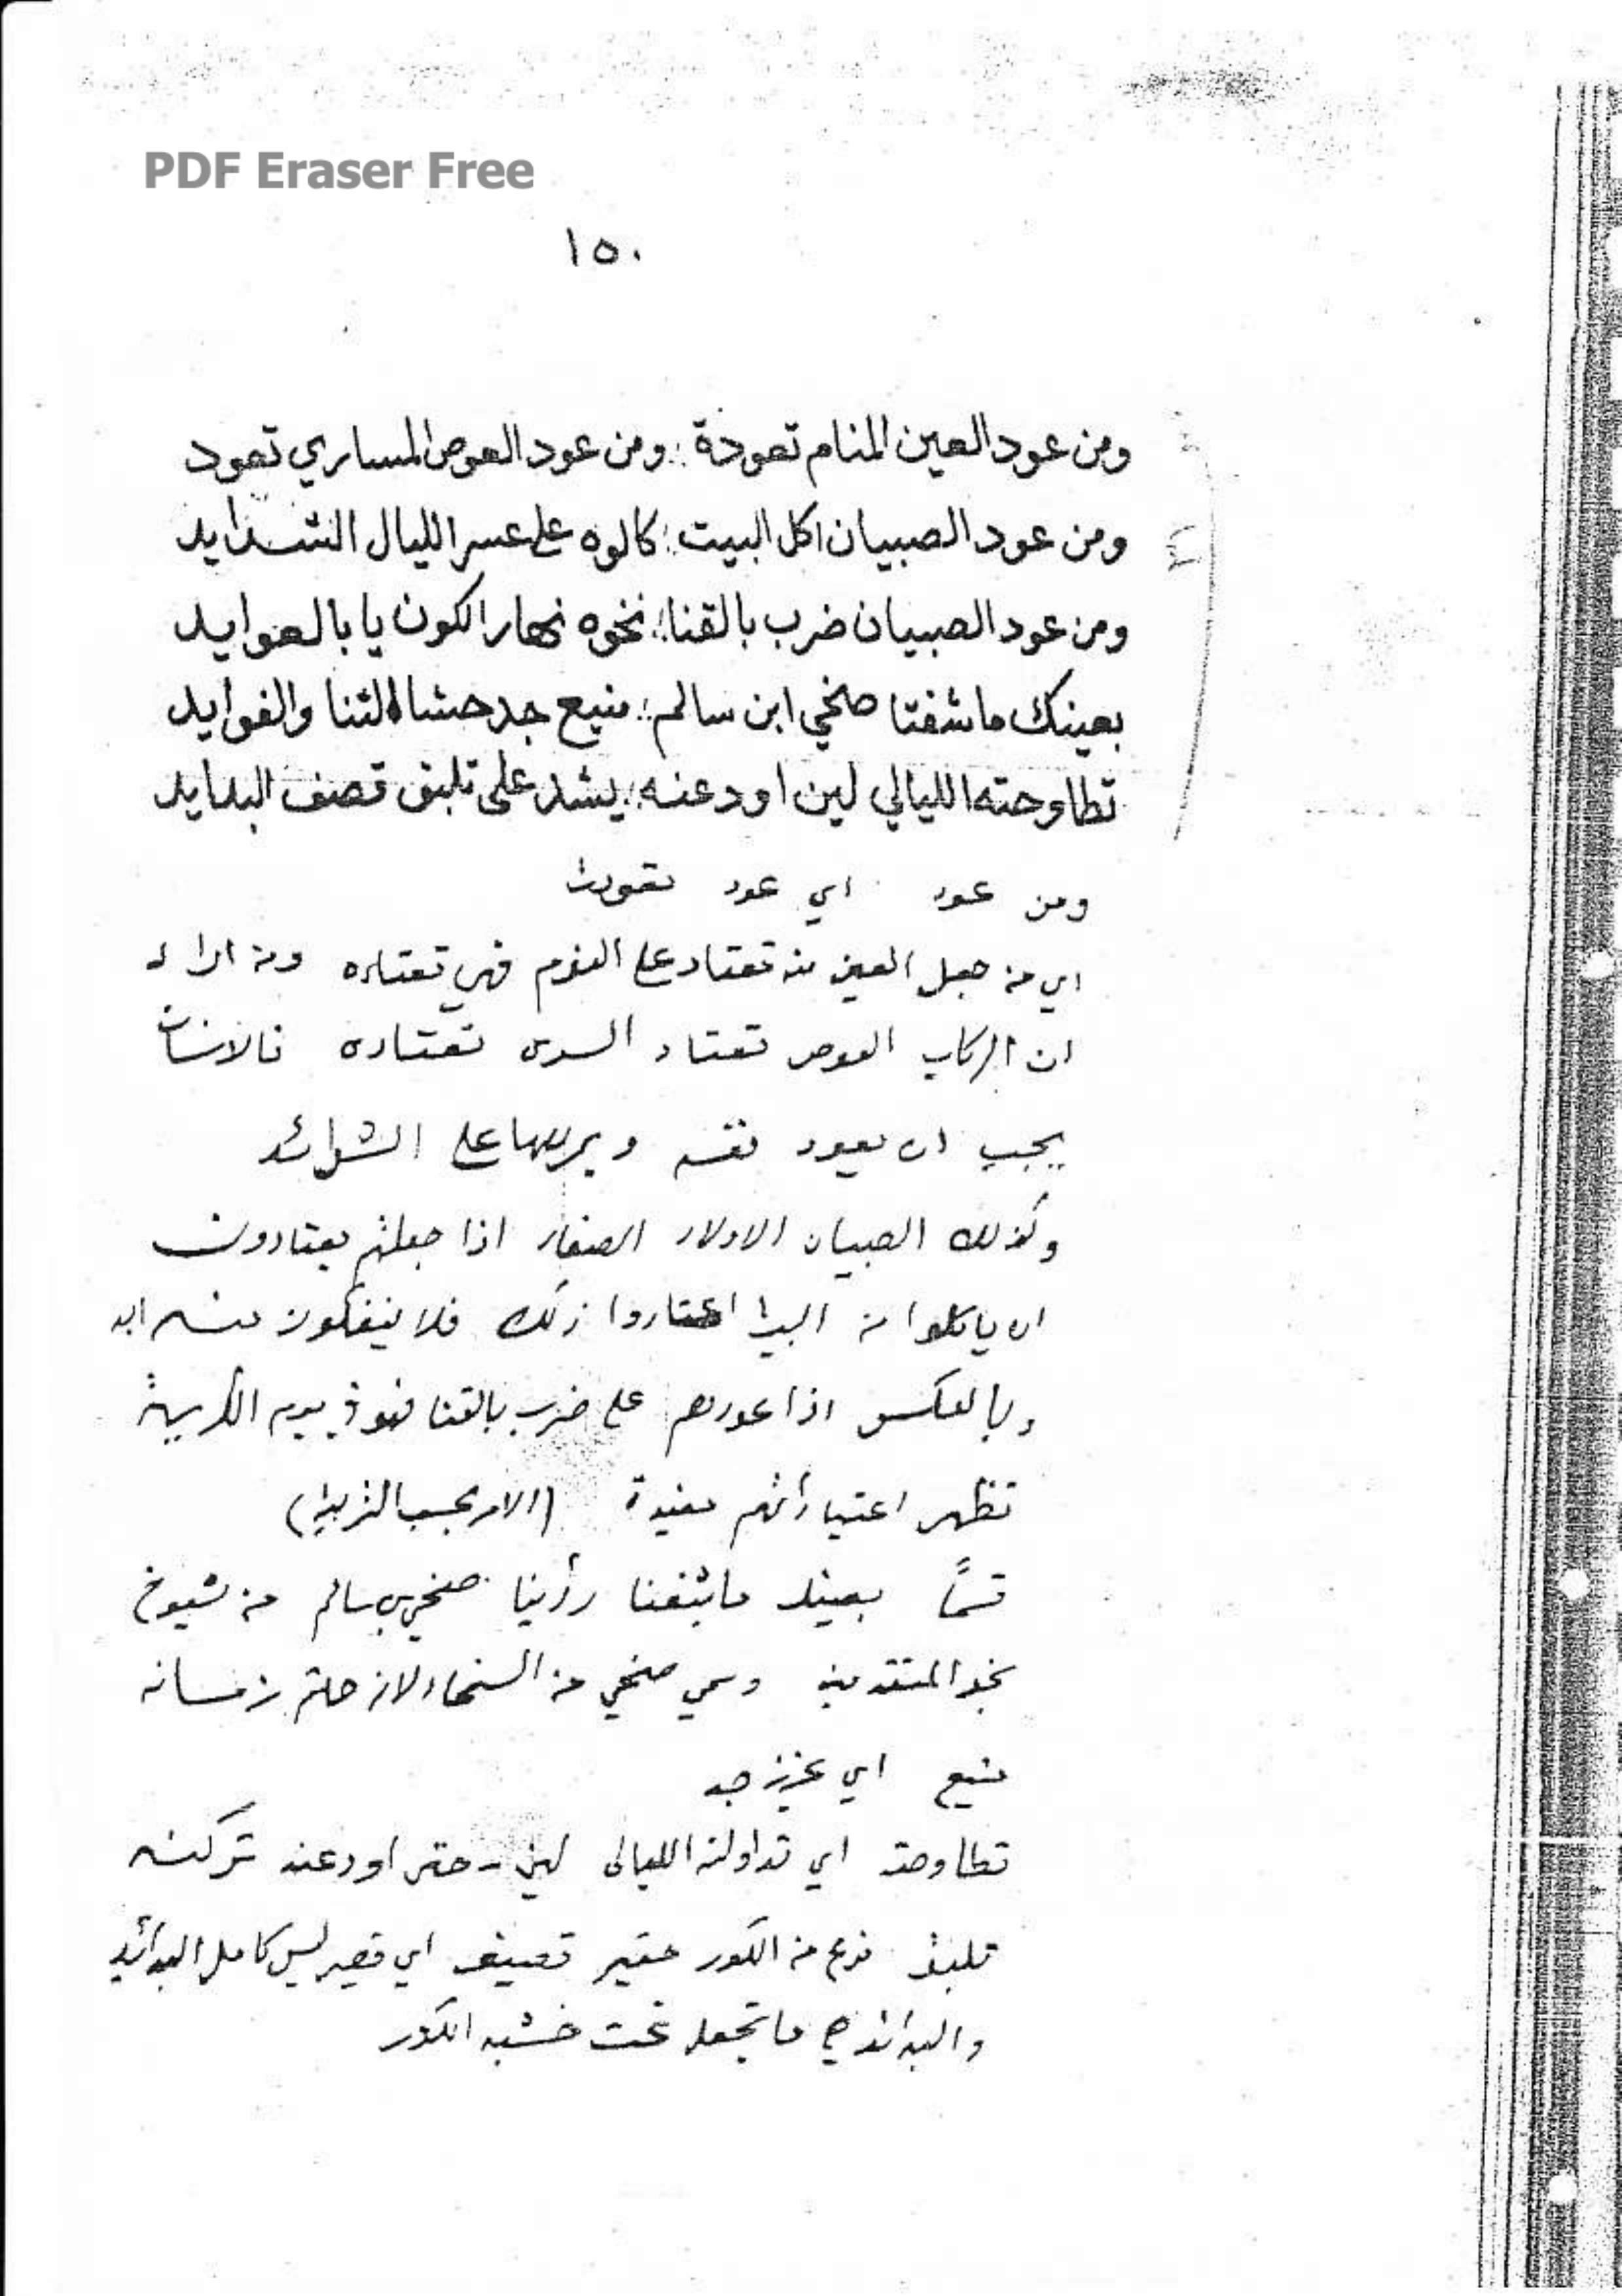 PDF Eraser Free
١٥٠
ومن عود العين المنام تعودة : ومن عود العوص المساري تعود
ومن عود الصبيان اكل البيت : كالوه على عسر الليال الشدايد
ومن عود الصبيان ضرب بالقنا : نخوه نهار الكون يا بالعوايد
بعينك ما شفتا صخي ابن سالم : منيع جد حشاه الثنا والفوايد
تطاوحته الليالي لين اودعنه : يشد على تلبق قصف البدايد
ومن عود اي عود تعودت
اي من جعل العين تعتاد على النوم فهي تعتاده ومن اراد
ان الركاب العوص تعتاد السرى تعتاده فالانسان
يجب ان يعود نفسه ويمرنها على الشدائد
وكذلك الصبيان الاولاد الصغار اذا جعلتهم يعتادون
ان ياكلوا من البيت اعتادوا ذلك فلا ينفكون منه ابد
وبالعكس اذا عودتهم على ضرب بالقنا يوم الكريهة
تظهر اعتياداتهم مفيدة (الامر بحسب التربية)
قسمًا بعينك ما شفنا رأينا صخي بن سالم من شيوخ
نجد المتقدمين وسمي صخي من السخاء لانه حاتم زمانه
منيع اي عزيز جد
تطاوحته اي تداولته الليالي لين - حتى اودعنه تركنه
تلبق نوع من الكور حقير قصيف اي قصير ليس كامل البدائد
والبدائد هي ما تجعل تحت خشبه الكور